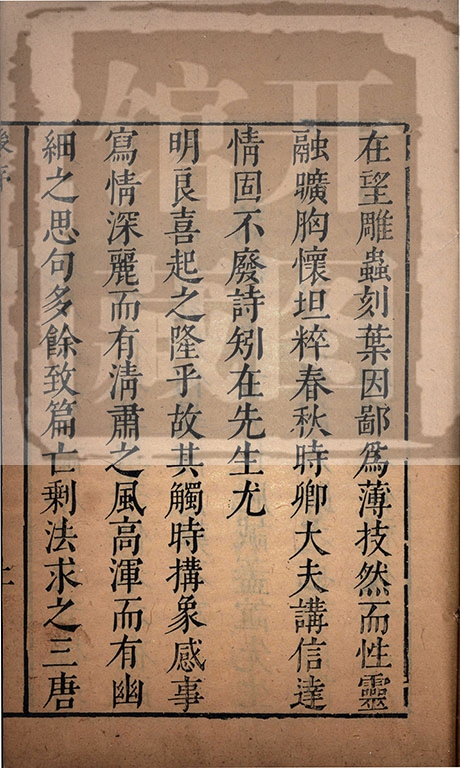 在望雕蟲刻葉因鄙爲薄技然而性靈
融曠胸懷坦粹春秋時卿大夫講信達
情固不廢詩矧在先生尤
明良喜起之隆乎故其觸時搆象感事
寫情深麗而有清肅之風高渾而有幽
細之思句多餘致篇亡剩法求之三唐